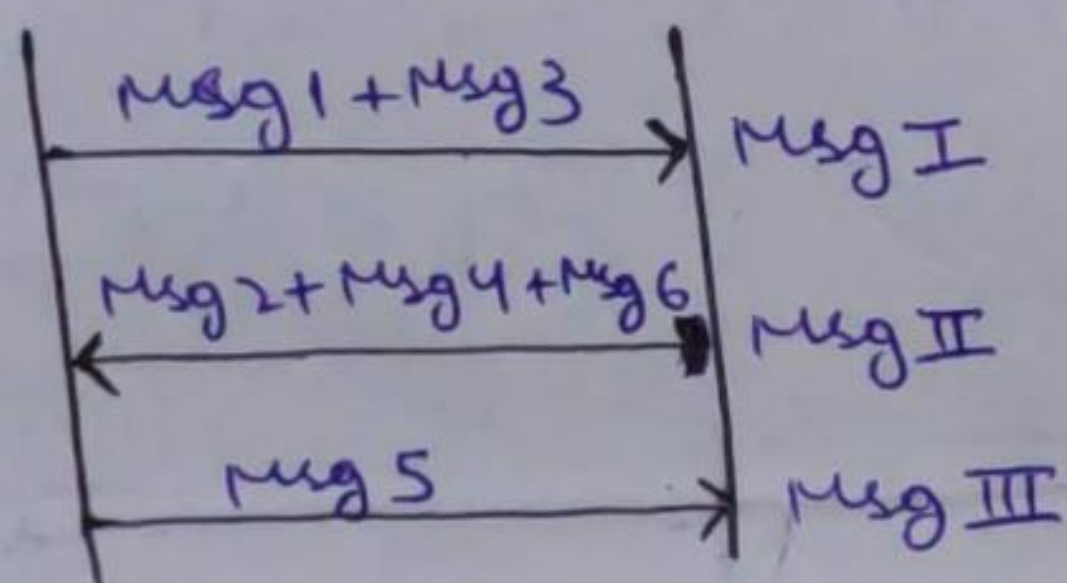 Msg 1 + Msg 3
Msg I
Msg 2 + Msg 4 + Msg 6
Msg II
Msg 5
Msg III